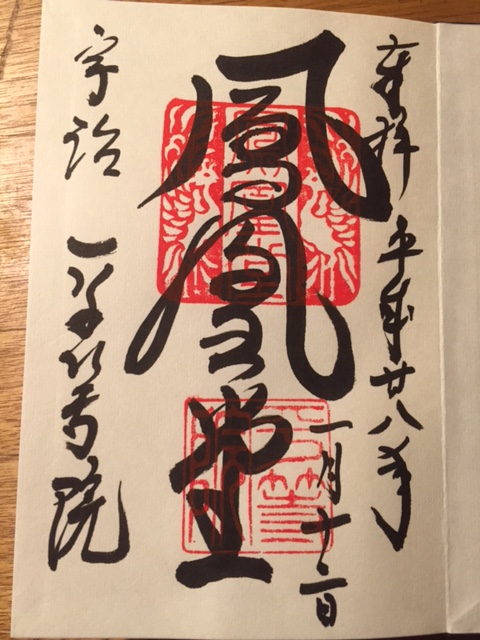 奉拝 平成廿八年
一月十二日
鳳凰堂
宇治 平等院